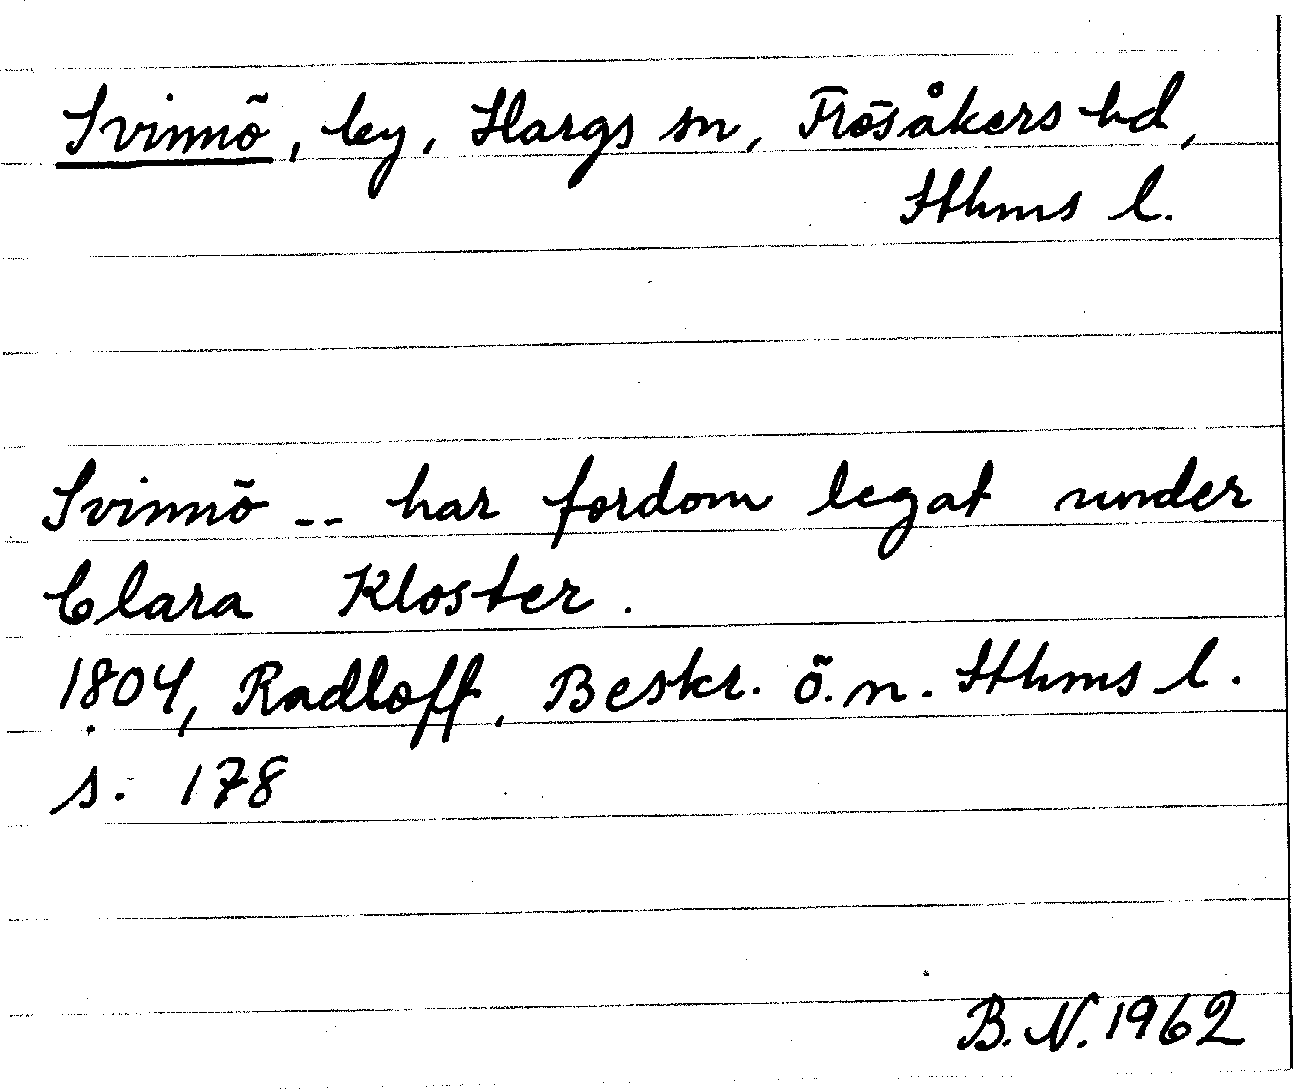 Svinnö, by, Hargs sn, Frösåkers hd,
Sthms l.
Svinnö -- har fordom legat under
Clara Kloster.
1804, Radloff, Beskr. ö. n. Sthms l.
s. 178
B. N. 1962